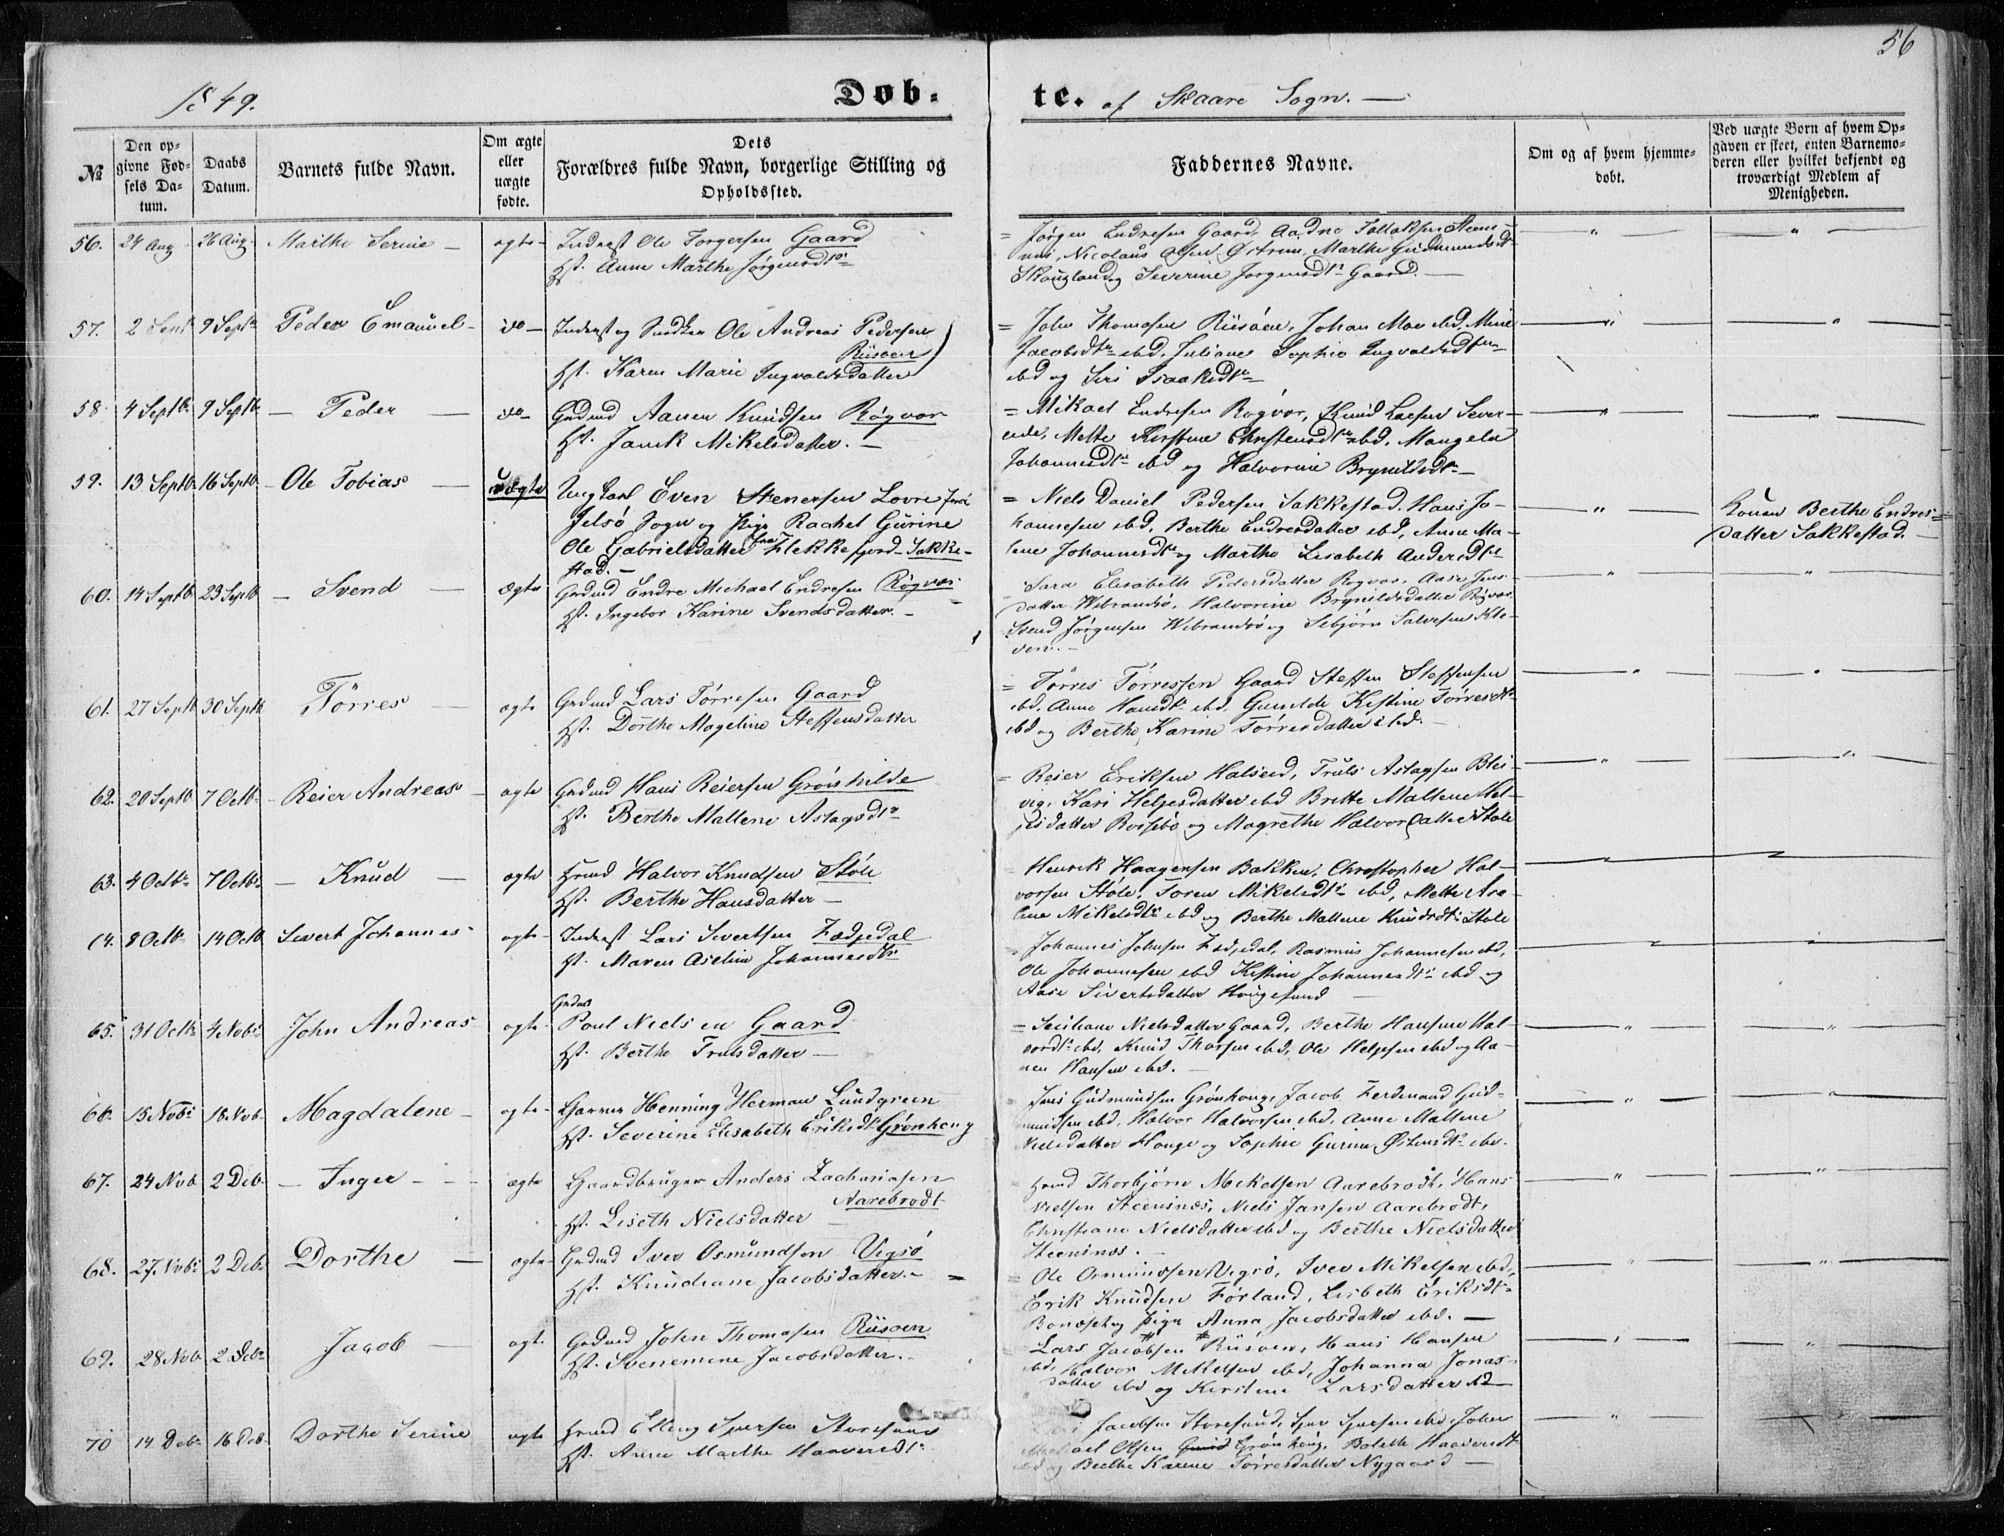 56
1849.
Døb-
te. af Skaare Sogn. —
№
Den op-
givne Fød-
sels Da-
tum.
Daabs
Datum.
Barnets fulde Navn.
Om ægte
eller
uægte
fødte.
Dets
Forældres fulde Navn, borgerlige Stilling og
Opholdssted.
Faddernes Navne.
Om og af hvem hjemme-
døbt.
Ved uægte Børn af hvem Op-
gaven er skeet, enten Barnemo-
deren eller hvilket bekjendt og
troværdigt Medlem af
Menigheden.
56. 24 Aug 26 Aug. Marthe Serine — ægte- Inderst Ole Torgersen Gaard
Hst. Anne Marthe Jørgensdtr
= Jørgen Endresen Gaard, Aadne Tollaksen Steens-
næs, Nicolaus Olsen Østrem, Marthe Gudmundsdt
Skougland og Severine Jørgensdtr Gaard. —
57. 2 Sept 9 Septbr Peder Emanuel- do — Inderst og Snedker Ole Andreas Pedersen
Risøen
Hst. Karen Marie Ingvaldsdatter
= John Thomasen Risøen, Johan Moe ibd, Mine
Jacobsdtr ibd. Juliane Sophie Ingvaldsdtr
ibd og Siri Isaaksdtr
58. 4 Septbr 9 Septbr — Peder — do- Grdmd Aanen Knudsen Røgvær
Hst. Janik Mikelsdatter. —
= Mikael Endresen Røgvær, Knud Larsen Sever-
eide, Mette Kirstine Christensdtr ibd, Mangela
Johannesdtr ibd og Halvorine Brynildsdtr —
59. 13 Septb 16 Septb Ole Tobias — Uægte Ungkarl Even Stenersen Lovre fra
Jelsø Sogn og Pige Rachel Gurine
Ole Gabrielsdatter fra Flekkefjord- Sakke-
stad. —
= Niels Daniel Pedersen Sakkestad, Hans Jo-
hannesen ibd, Berthe Endresdatter ibd, Anne Ma-
lene Johannesdtr og Marthe Lisabeth Andersdtr
Konen Berthe Endres-
datter Sakkestad. —
60. 14 Septb 23 Septb — Svend — Ægte Grdmd Endre Michael Endresen Røgvær
Hst. Ingebor Karine Svendsdatter. —
Sara Elisabeth Pedersdatter Røgvær, Aase Jens-
datter Wibrandsø, Halvorine Brynildsdatter Røgvær
Svend Jørgensen Wibrandsø og Sebjørn Salvesen Kle-
ven. —
61. 27 Septb 30 Septb Tørres — ægte Grdmd Lars Tørresen Gaard
Hst. Dorthe Mageline Steffensdatter
= Tørres Tørressen Gaard Steffen Steffensen
ibd, Anne Hansdtr ibd, Gunilde Kistine Tørresdtr
ibd og Berthe Karine Tørresdatter ibd. —
62. 20 Septb 7 Octbr Reier Andreas — ægte Grdmd Hans Reiersen Grønhilde
Hst. Berthe Mallene Aslagsdtr
= Reier Eriksen Halseid, Truls Aslagsen Blei-
vig, Kari Helgesdatter ibd Britte Mallene Hel-
gesdatter Rossebø og Magrethe Halvorsdatter Støle
63. 4 Octbr 7 Octbr — Knud — ægte Hmd Halvor Knudsen Støle
Hst. Berthe Hansdatter —
Henrik Haagensen Bakken, Christopher Hal-
vorsen Støle, Toren Mikelsdtr ibd, Mette Are-
lene Mikelsdtr ibd og Berthe Mallene Knudsdtr Støle
64. 8 Octbr 14 Octb Sivert Johannes- ægte- Inderst Lars Sivertsen Fædjedal
Hst. Maren Aseline Johannesdtr
= Johannes Johnsen Fædjedal, Rasmus Johannesen ibd,
Ole Johannesen ibd Kistine Johannesdtr ibd og
Aase Sivertsdatter Hougesund —
65. 31 Octb 4 Novbr John Andreas- ægte- Grdmd
Poul Nielsen Gaard
Hst. Berthe Trulsdatter —
= Siciliane Nielsdatter Gaard, Berthe Hansine Hal-
vorsdtr ibd, Knud Thorsen ibd, Ole Helgesen ibd og Aa-
nen Hansen ibd. —
66. 15 Novbr 18 Nov Magdalene — ægte- Garver Henning Herman Lundgreen
Hst. Severine Elisabeth Eriksdtr Grønhoug
Jens Gudmundsen Grønhoug, Jacob Ferdinand Gud-
mundsen ibd, Halvor Halvorsen ibd, Anne Mallene
Nielsdatter Houge og Sophie Gurine Østensdtr ibd.
67. 24 Nov 2 Deb — Inger — ægte Gaardbruger Anders Zachariasen
Aarebrodt
Hst. Liseth Nielsdatter —
Hmd Thorbjørn Mikelsen Aarebrodt, Hans
Nielsen Steensnes, Niels Jansen Aarebrodt,
Christiane Nielsdatter ibd og Berthe Nielsdatter
Steensnes. —
68. 27 Novbr 2 Debr Dorthe — ægte- Grdmd Iver Osmundsen Vigsø
Hst. Knudiane Jacobsdatter. — =
= Ole Osmundsen Vigsø, Iver Mikelsen ibd,
Erik Knudsen Førland, Lisbeth Eriksdtr
Bonosch og Pige Anna Jacobsdatter ibd. —
69. 28 Nov 2 Debr Jacob — ægte Grdmd John Thomasen Risøen
Hst. Svenemine Jacobsdatter. —
Lars Jacobsen Risøen, Hans Hansen
ibd, Halvor Mikelsen ibd, Johanna Jonas-
datter ibd og Kirstene Larsdatter ibd
70 14 Debr 16 Deb Dorthe Serine ægte Hmd Elling Sjursen Storesund
Hst. Anne Marthe Haaversdtr
Jacobsen Storesund, Sjur Sjursen ibd, John
Olsen Grønhoug, Bolette Haaversdtr
ibd og Berthe Karine Tørresdatter Nygaard —